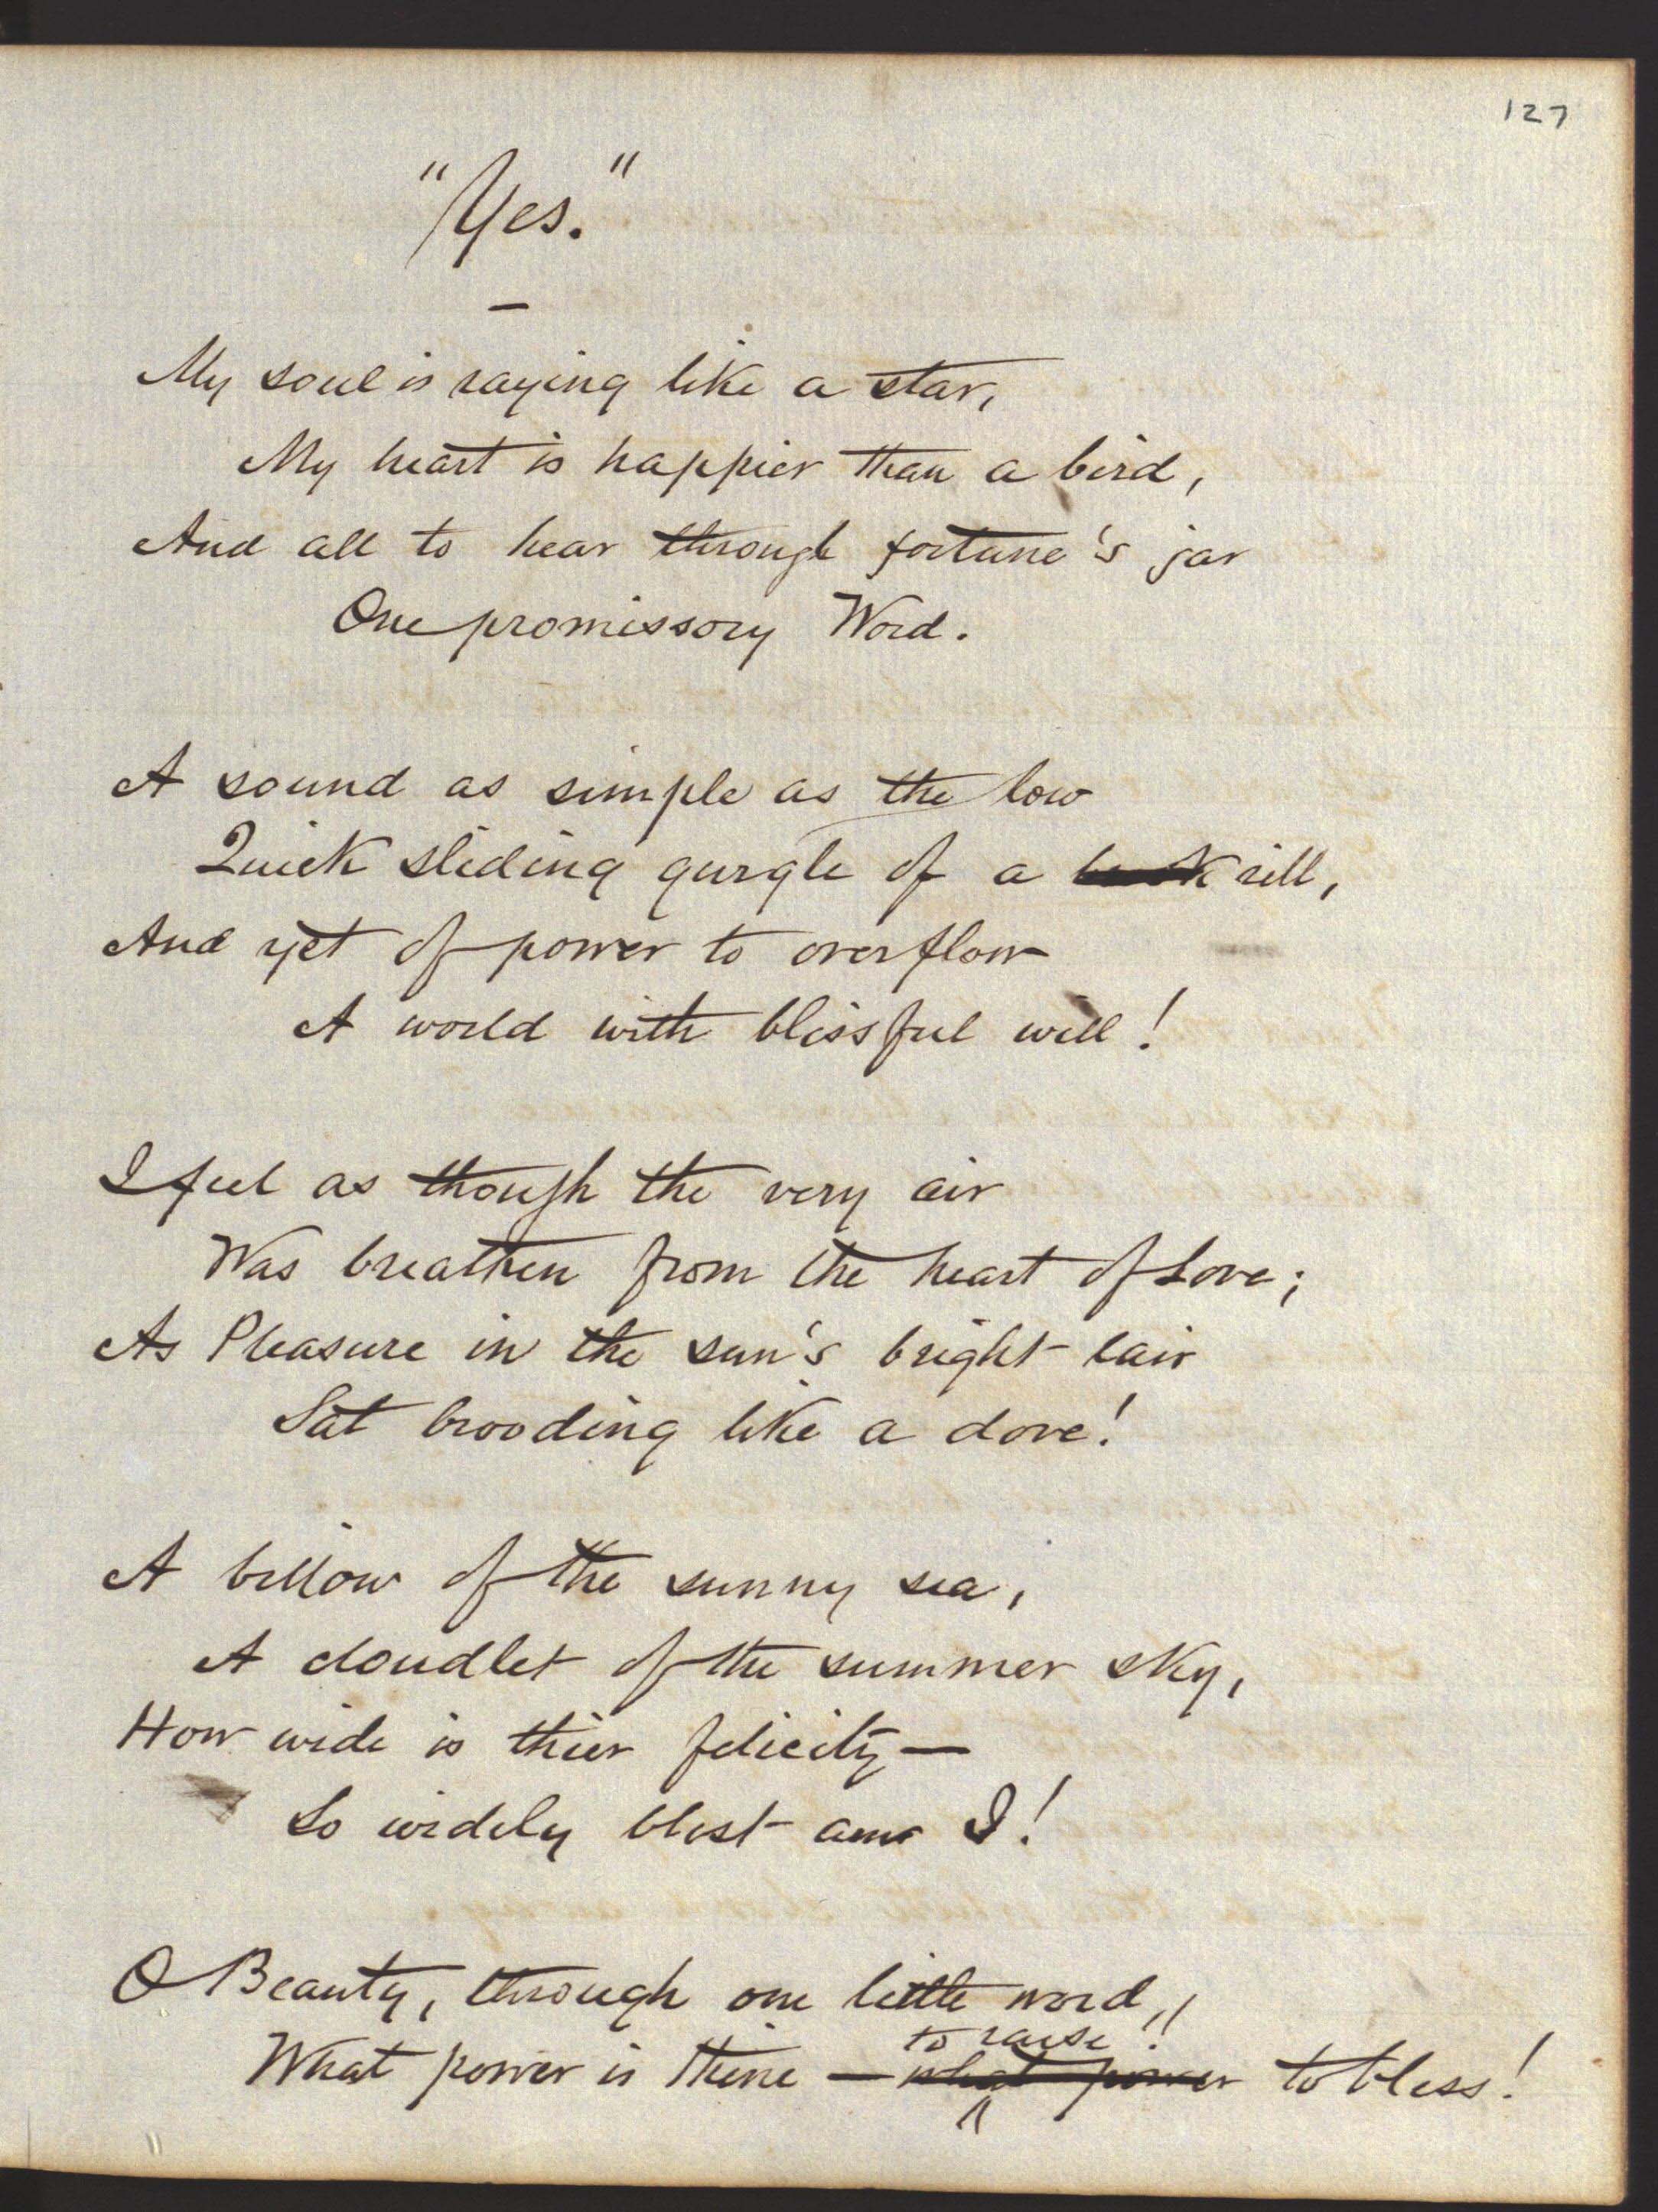 127
"Yes."
My soul is raying like a star,
My heart is happier than a bird,
And all to hear through fortune's jar
One promissory Word.
A sound as simple as the low
Quick sliding gurgle of a rill,
And yet of power to overflow
A world with blissful will!
I feel as though the very air
Was breathen from the heart of Love;
As Pleasure in the sun's bright lair
Sat brooding like a dove!
A billow of the sunny sea,
A cloudlet of the summer sky,
How wide is thier felicity—
So widely blest am I!
O Beauty, through one little word,
to raise!
What power is thine — what power to bless!